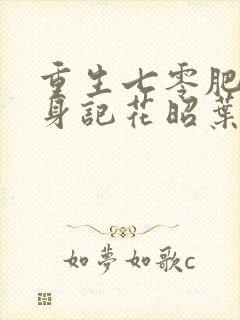 重生七零肥
身記花昭葉
如夢如歌c